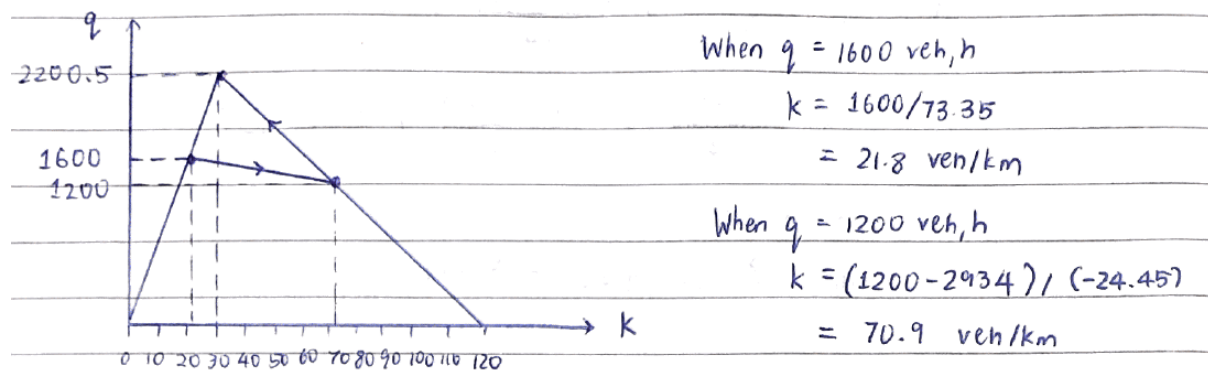 q
2200.5
1600
1200
0 10 20 30 40 50 60 70 80 90 100 110 120
k
When q = 1600 veh,h
k = 1600/73.35
= 21.8 veh/km
When q = 1200 veh,h
k = (1200-2934) / (-24.45)
= 70.9 veh/km